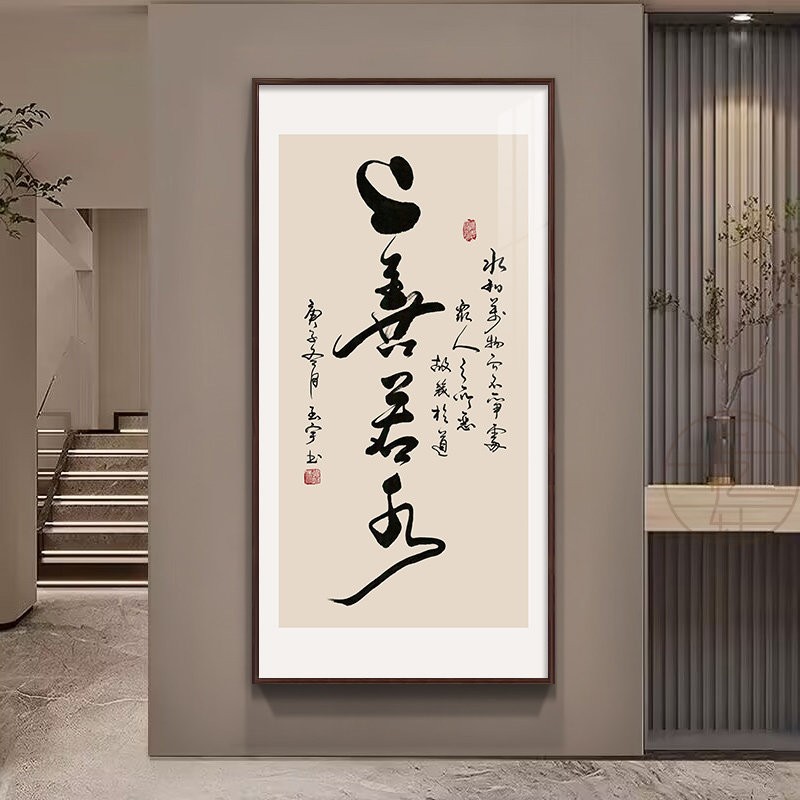 水利萬物而不爭處
眾人之所惡
故幾於道
上善若水
庚子冬月 玉宇书